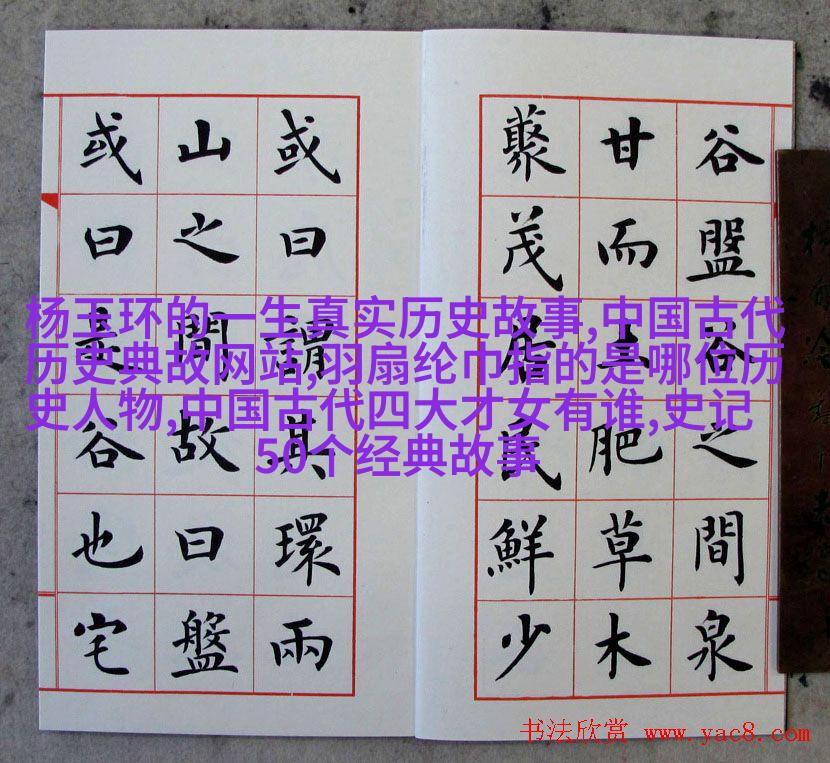 谷盤谷之間泉
甘而土肥草木
藂茂居民鮮少
或曰謂其環兩
山之間故曰盤
或曰是谷也宅
杨玉环的一生真实历史故事,中国古代
历史典故网站,羽扇纶巾指的是哪位历
史人物,中国古代四大才女有谁,史记
50个经典故事
书法欣赏 www.yac8.com